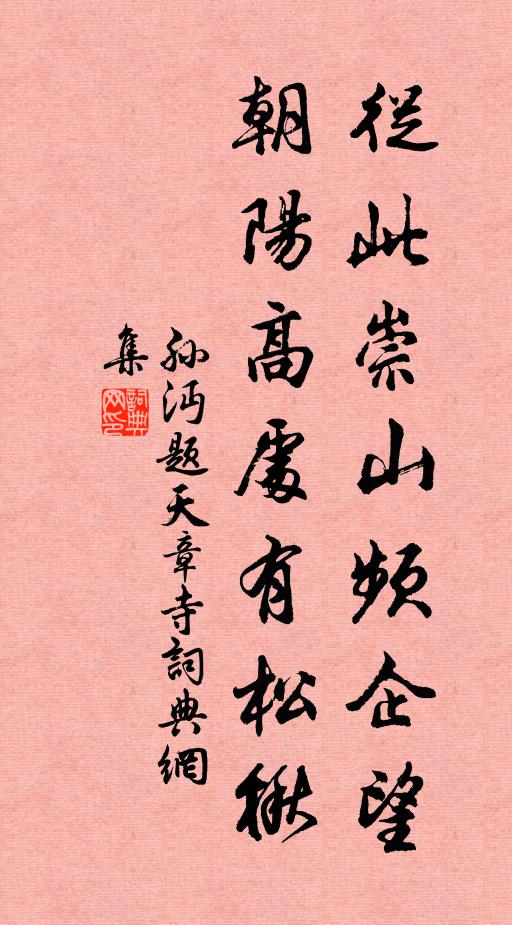 從此崇山頻企望
朝陽高處有松楸
孫沔題天章寺詞典網
集
詞典
網印